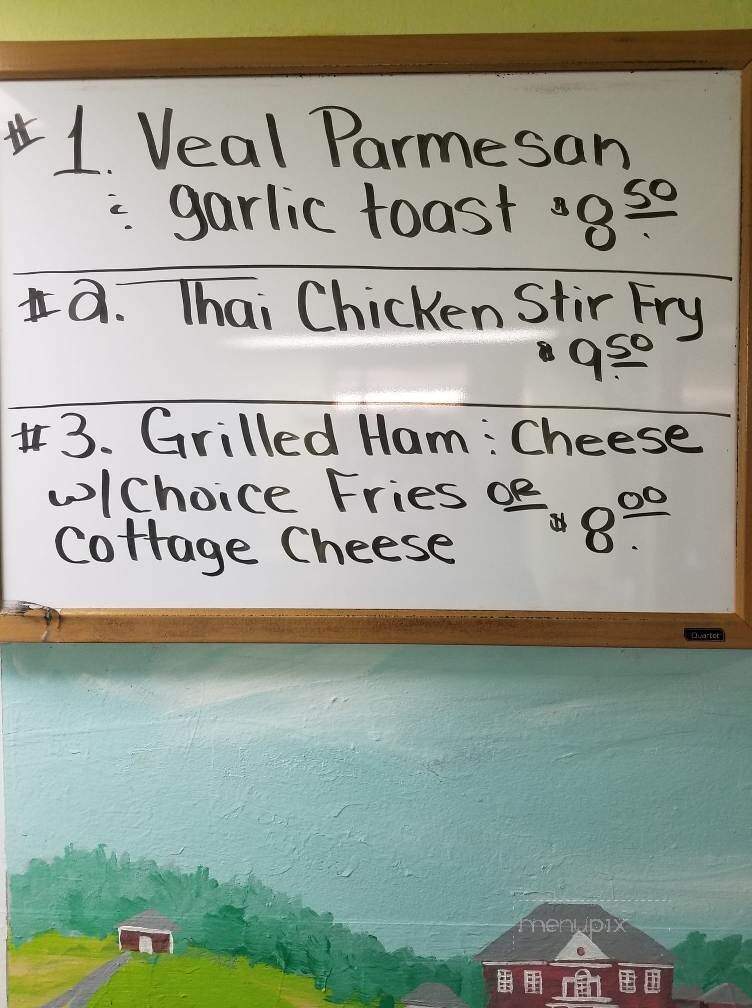 #1. Veal Parmesan
: garlic toast $8.50
#2. Thai Chicken Stir Fry
$9.50
#3. Grilled Ham : Cheese
w/Choice Fries OR
Cottage Cheese $8.00
Quartet
menupix